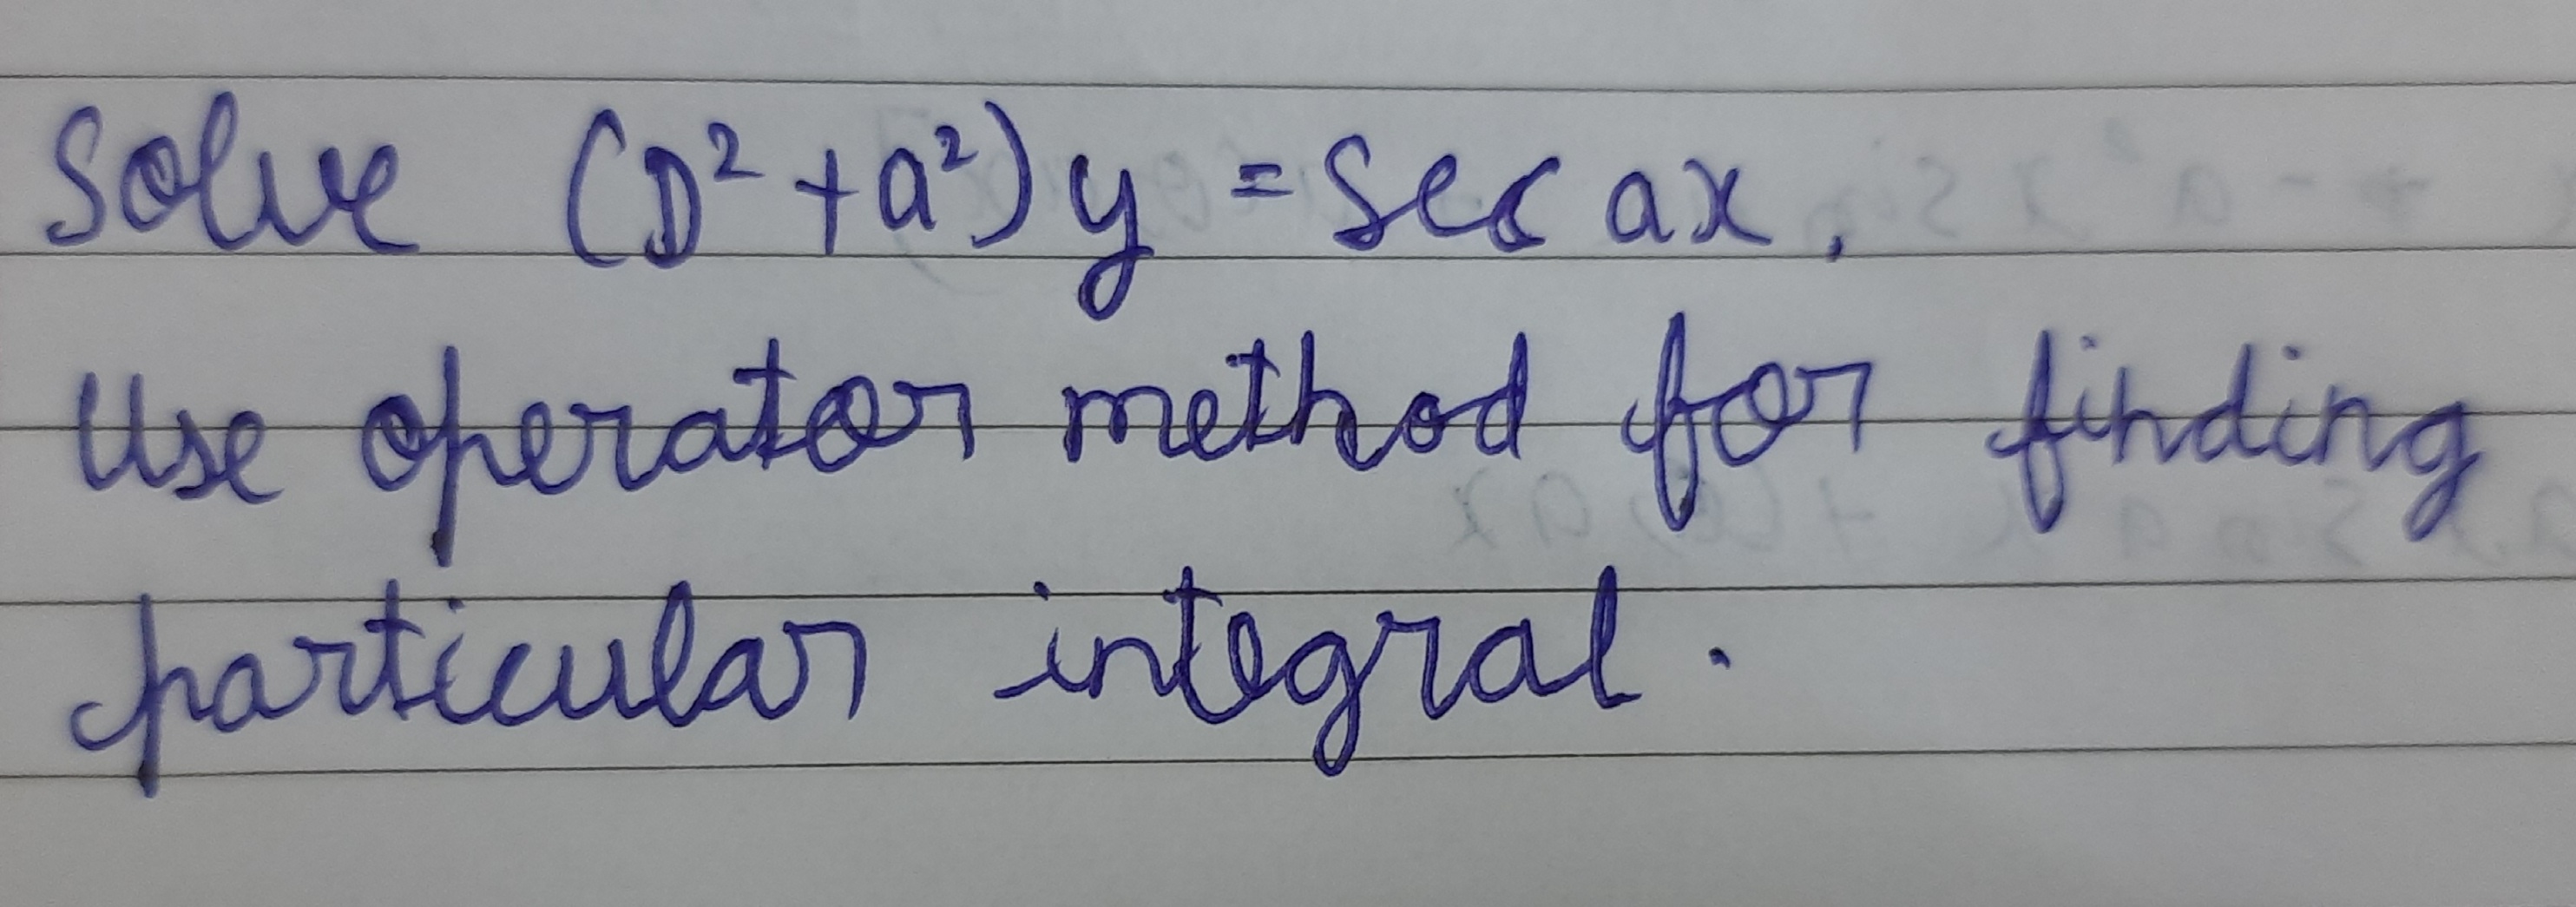 Solve (D² + a²) y = sec ax,
Use operator method for finding
particular integral.